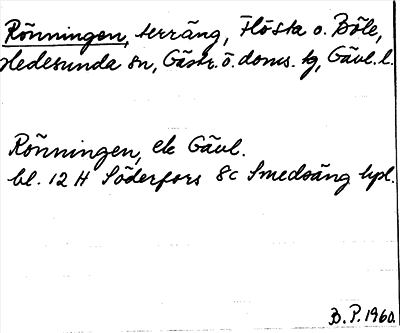 Rönningen, terräng, Flösta o. Böle,
Hedesunda sn, Gästr. ö. doms. tg, Gävl. l.
Rönningen, ek Gävl.
bl. 12 H Söderfors 8c Smedsäng hpl.
B. P. 1960.